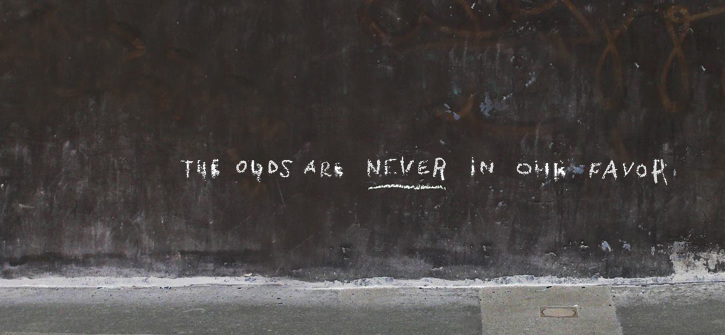 THE ODDS ARE NEVER IN OUR FAVOR